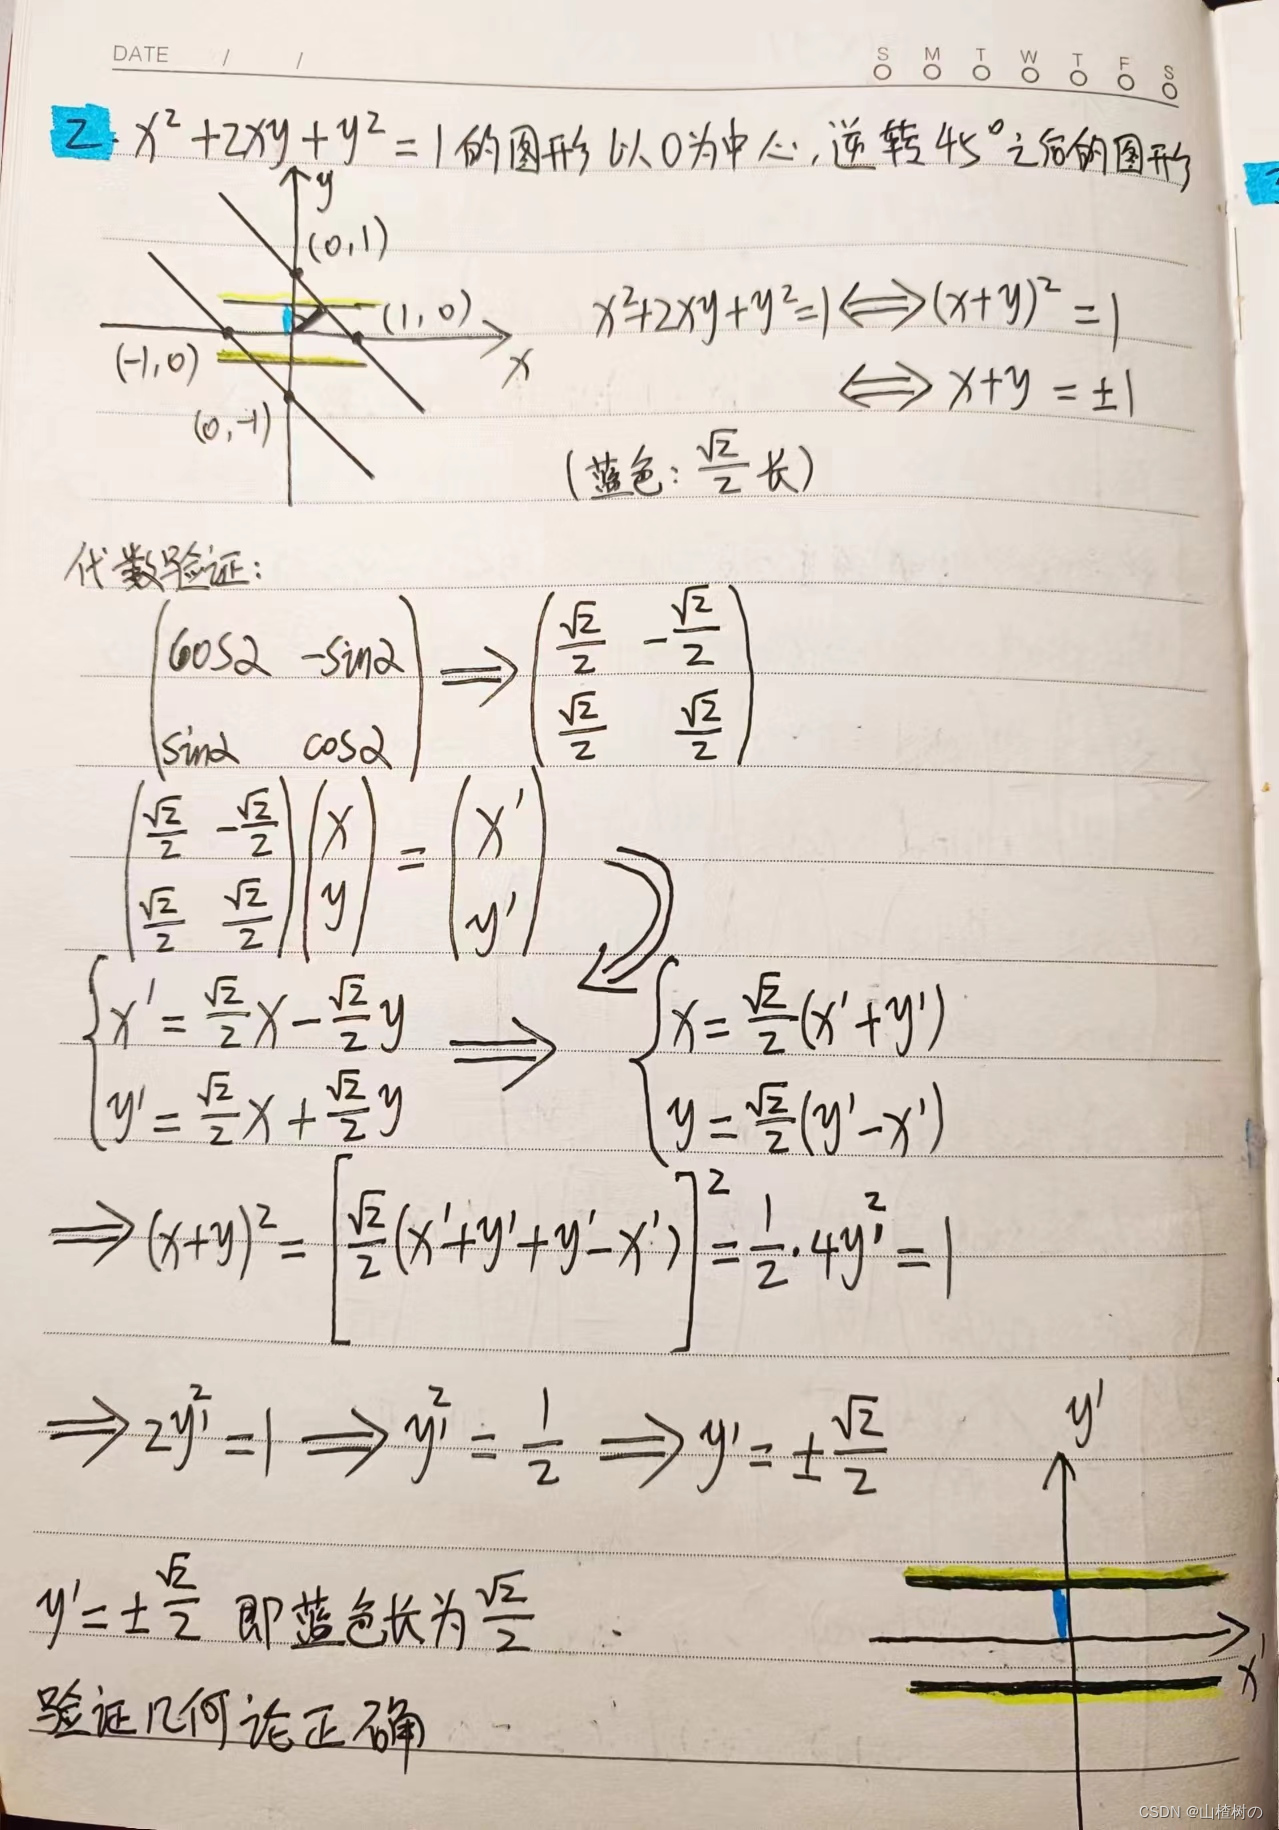 DATE / / S M T W T F S
2. x² + 2xy + y² = 1 的图形以0为中心,逆转45°之后的图形
y
(0,1)
(1,0)
x
(-1,0)
(0,-1)
x²+2xy+y²=1 ⟺ (x+y)² = 1
⟺ x+y = ±1
(蓝色: √2/2 长)
代数验证:
(cosα -sinα; sinα cosα) ⟹ (√2/2 -√2/2; √2/2 √2/2)
(√2/2 -√2/2; √2/2 √2/2)(x; y) = (x'; y')
{x' = √2/2 x - √2/2 y ⟹ {x = √2/2 (x'+y')
y' = √2/2 x + √2/2 y y = √2/2 (y'-x')
⟹ (x+y)² = [√2/2 (x'+y'+y'-x')]² = 1/2 · 4y'² = 1
⟹ 2y'² = 1 ⟹ y'² = 1/2 ⟹ y' = ± √2/2
y'
x'
y' = ± √2/2 即蓝色长为 √2/2
验证几何论正确
CSDN @山楂树の